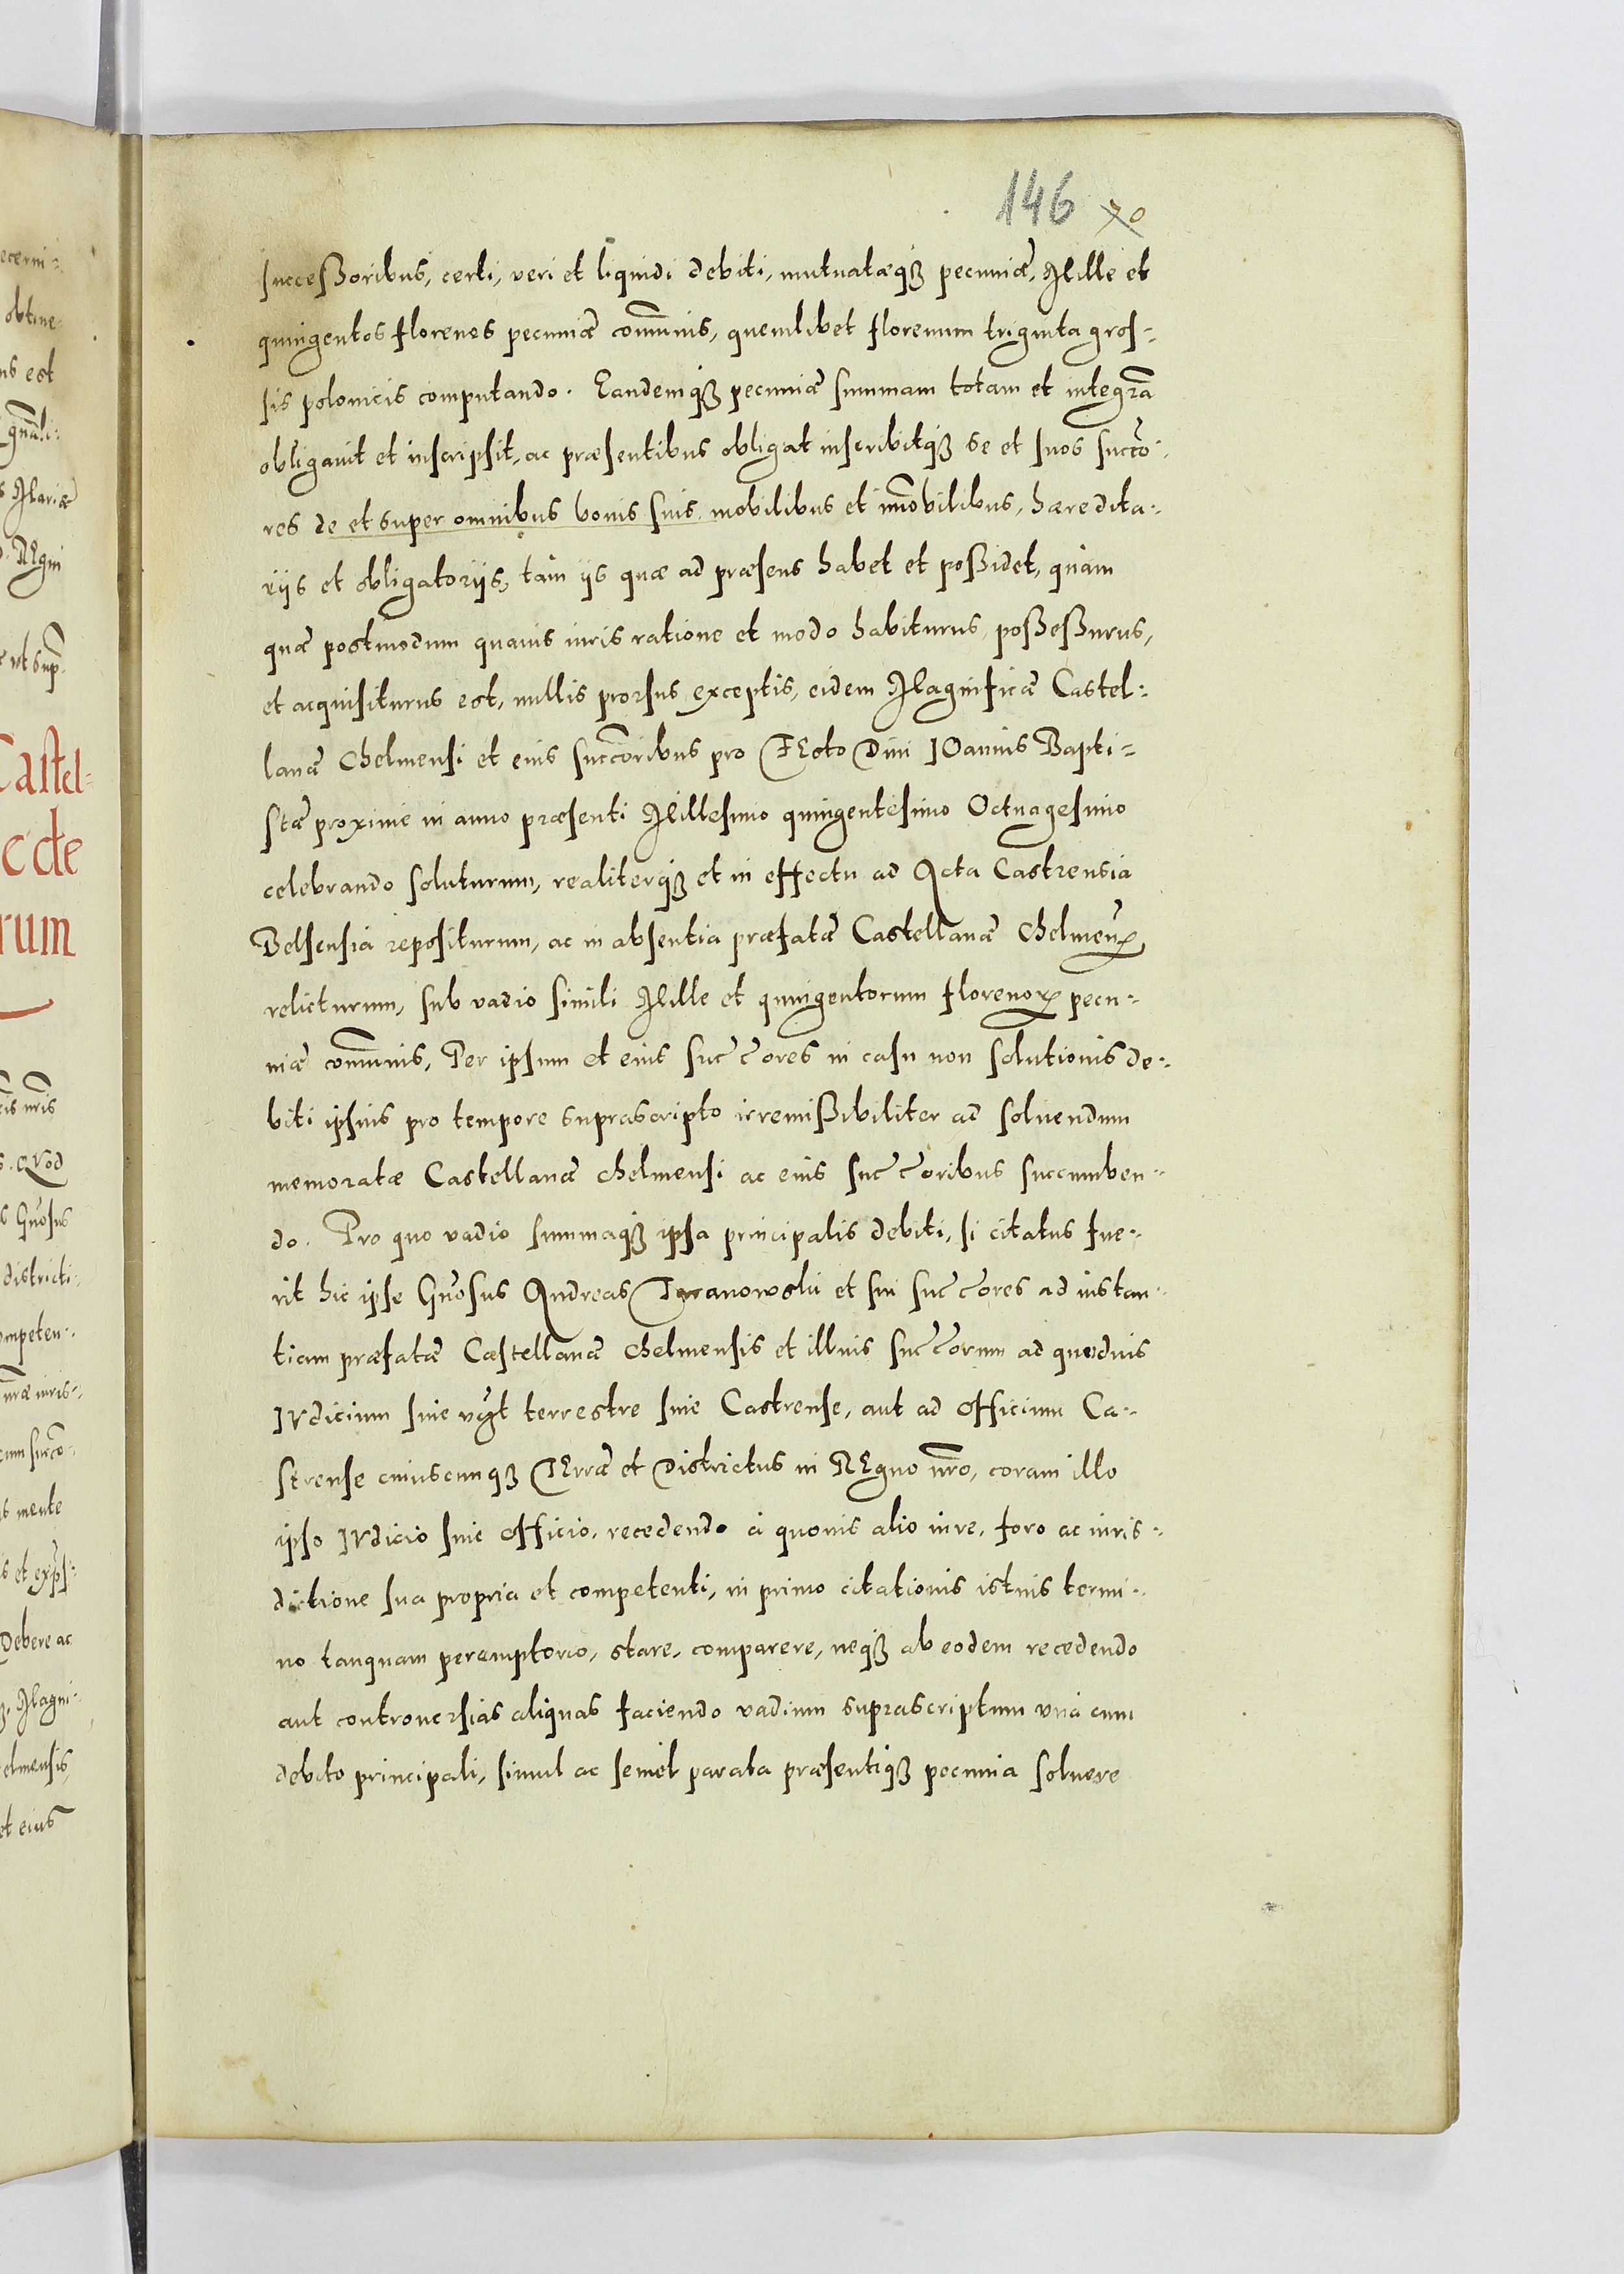 146 70
successoribus, certi, veri et liquidi debiti, mutuatæqꝫ pecuniæ, Mille et
quingentos florenos pecuniæ com̃unis, quemlibet florenum triginta gros-
sis polonicis computando. Eandemqꝫ pecuniæ summam totam et integrã
obligavit et inscripsit, ac præsentibus obligat inscribitqꝫ se et suos succõ-
res de et super omnibus bonis suis mobilibus et im̃obilibus, hæredita-
riis et obligatoriis, tam iis quæ ad præsens habet et possidet, quàm
quæ postmodum quavis iuris ratione et modo habiturus, possessurus,
et acquisiturus est, nullis prorsus exceptis, eidem Magnificæ Castel-
lanæ Chelmensi et eius succõribus pro FEsto Diui IOannis Bapti-
stæ proximè in anno præsenti Millesimo quingentesimo Octuagesimo
celebrando soluturum, realiterqꝫ et in effectu ad Acta Castrensia
Belsensia repositurum, ac in absentia præfatæ Castellanæ Chelmen̄
relicturum, sub vadio simili Mille et quingentorum florenoꝝ pecu-
niæ com̃unis, Per ipsum et eius succ̃ores in casu non solutionis de-
biti ipsius pro tempore suprascripto irremissibiliter ad soluendum
memoratæ Castellanæ Chelmensi ac eius succ̃oribus succumben-
do. Pro quo vadio summaqꝫ ipsa principalis debiti, si citatus fue-
rit hic ipse Gñosus Andreas Twanowski et sui succ̃ores ad instan-
tiam præfatæ Castellanæ Chelmensis et illius succ̃orum ad quoduis
IVdicium siue terrestre siue Castrense, aut ad Officium Ca-
strense cuiuscunqꝫ TErræ et Districtus in REgno nr̃o, coram illo
ipso IVdicio siue Officio, recedendo à quouis alio iure, foro ac iuris-
dictione sua propria et competenti, in primo citationis istius termi-
no tanquam peremptorio, stare, comparere, neqꝫ ab eodem recedendo
aut controuersias aliquas faciendo vadium suprascriptum vnà cum
debito principali, simul ac semel parata præsentiqꝫ pecunia soluere